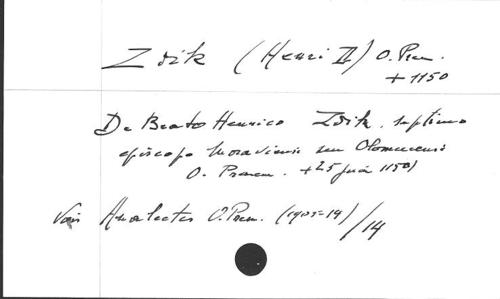 Zdik (Henri II) O. Prem.
+ 1150
De Beato Henrico Zdik, septimo
episcopo Moraviensi seu Olomucensi
O. Praem. +25 juin 1150)
Voir Analectes O. Prem. (1905-19)/14